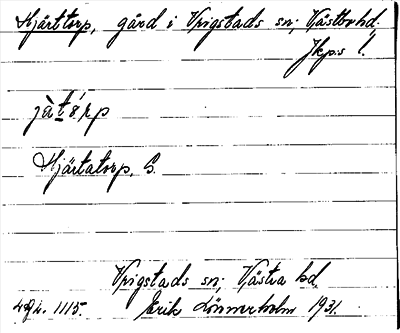 Hjärttorp, gård i Vrigstads sn; Västbo hd.
Jkps l.
Hjärtatorp, G.
Vrigstads sn; Västra hd
Erik Lönnerholm 1931.